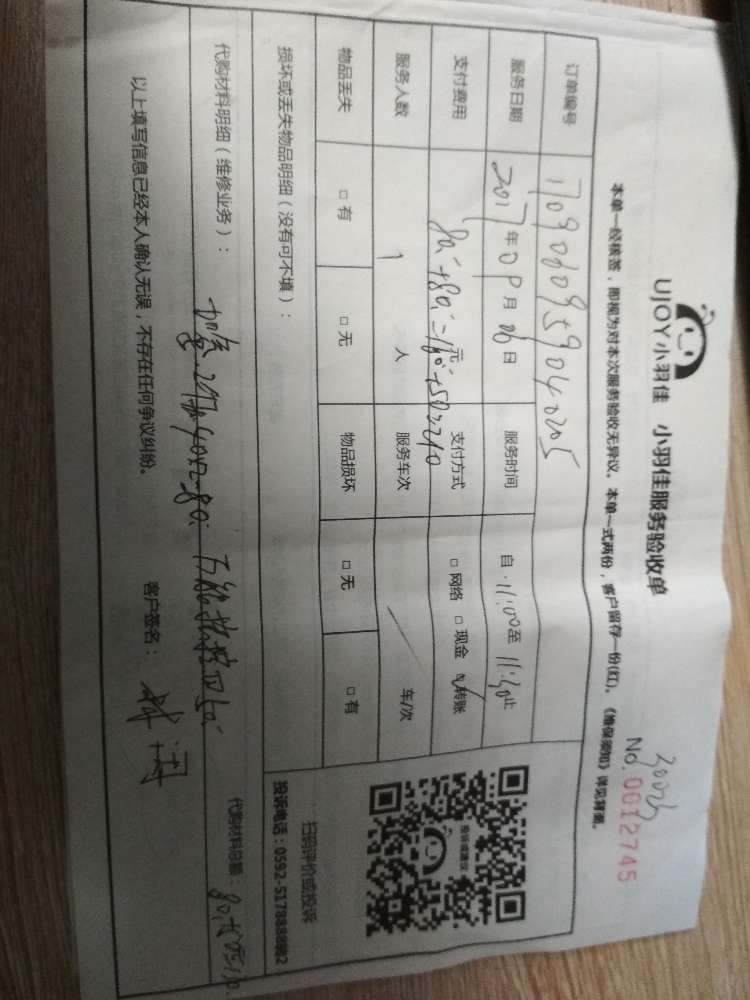 30023
UJOY小羽佳 小羽佳服务验收单
No. 0012745
本单一经核签，即视为对本次服务验收无异议。本单一式两份，客户留存一份(红)。《维保须知》详见背面。
订单编号 1709060959040205
服务日期 2017年09月06日 服务时间 自11:00至11:30止
支付费用 元 支付方式 □网络 □现金 转账
服务人数 1 人 服务车次 车/次
物品丢失 □有 □无 物品损坏 □无 □有
损坏或丢失物品明细（没有可不填）：
投诉或建议
扫码评价或投诉
投诉电话：0592-5178880002
代购材料明细（维修业务）：
代购材料总额：
以上填写信息已经本人确认无误，不存在任何争议纠纷。
客户签名：